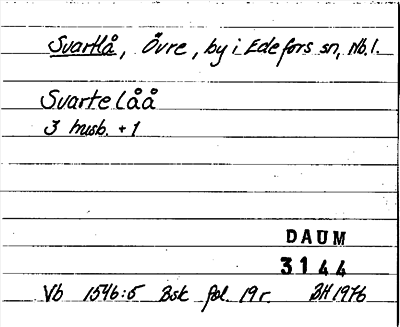 Svartlå, Övre, by i Edefors sn, Nb. l.
Svarte låå
3 husb. + 1
DAUM
3144
Vb 1546:5 Bsk fol. 19 r. BH 1976